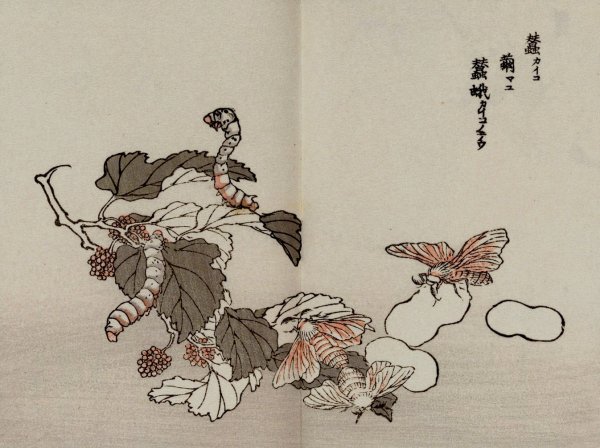 蠶 カイコ
繭 マユ
蠶蛾 カイコノテフ